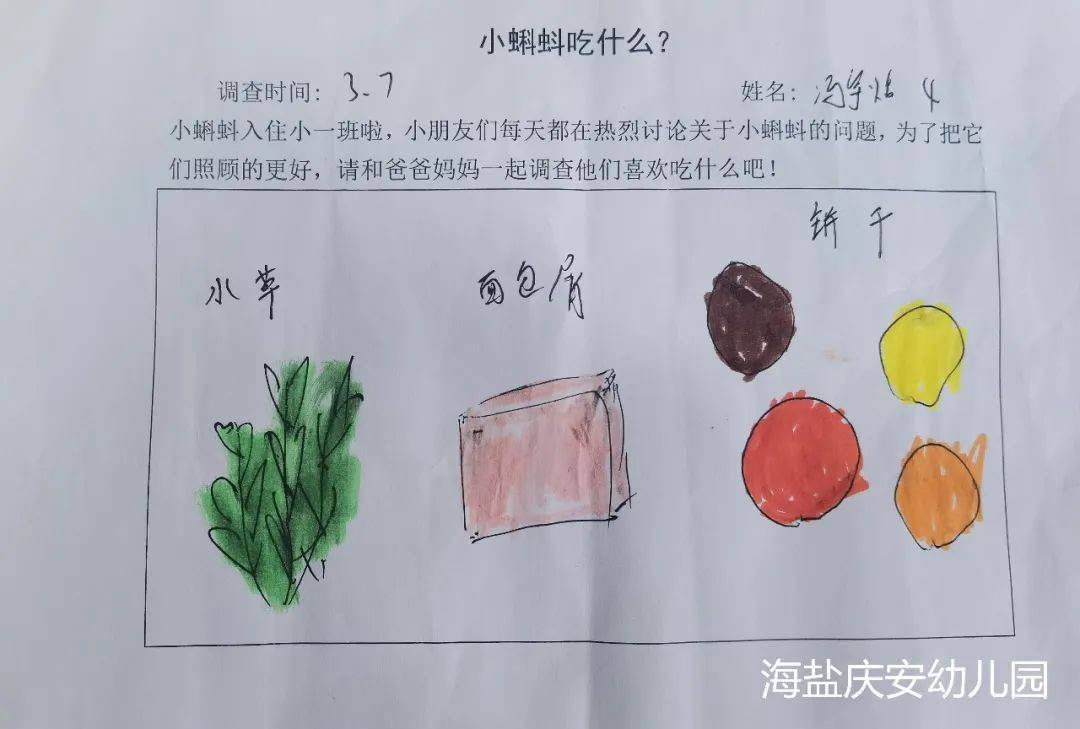 小蝌蚪吃什么？
调查时间：3.7 姓名：冯宇 4
小蝌蚪入住小一班啦，小朋友们每天都在热烈讨论关于小蝌蚪的问题，为了把它
们照顾的更好，请和爸爸妈妈一起调查他们喜欢吃什么吧！
饼干
水草 面包屑
海盐庆安幼儿园